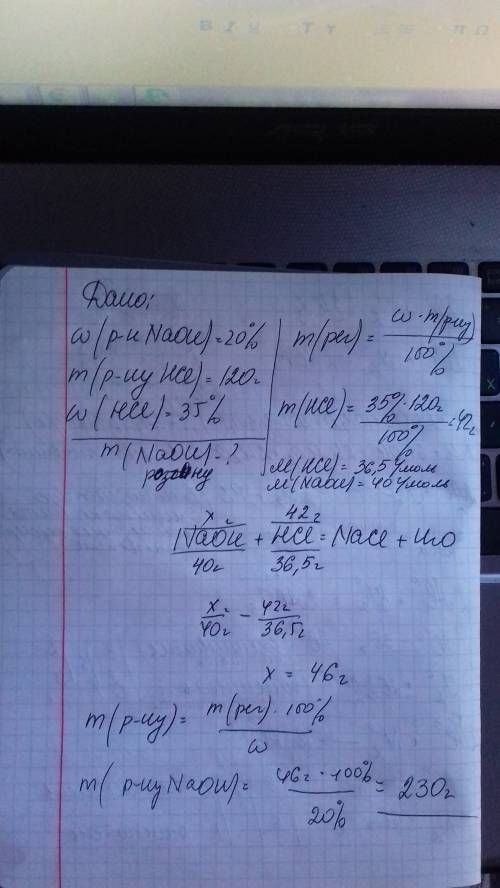 Дано:
ω(р-н NaOH)=20%
m(р-ну HCl)=120г
ω(HCl)=35%
m(NaOH)-?
розчину
m(реч)= ω·m(р-ну)
100%
m(HCl)= 35%·120г =42г
100%
M(HCl)=36,5г/моль
M(NaOH)=40г/моль
xг 42г
NaOH + HCl = NaCl + H₂O
40г 36,5г
xг - 42г
40г 36,5г
x = 46г
m(р-ну)= m(реч)·100%
ω
m(р-ну NaOH)= 46г·100% = 230г
20%